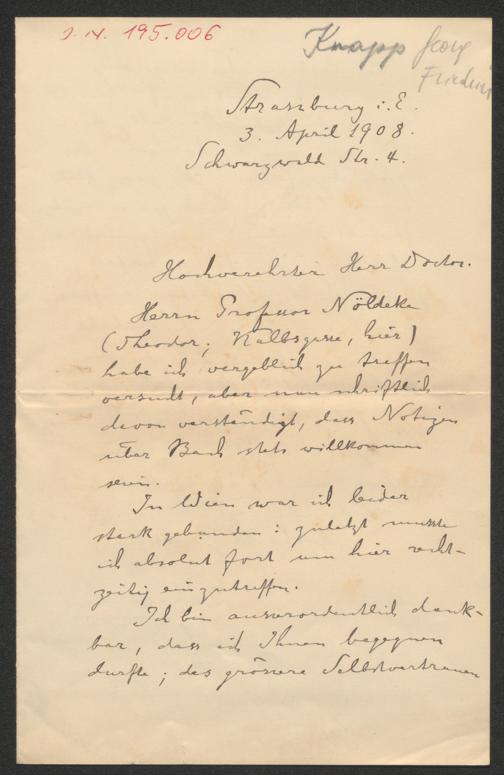 J. N. 195.006
Knapp Georg
Friedrich
Straszburg i. E.
3. April 1908.
Schwarzwald Str. 4.
Hochverehrter Herr Doctor.
Herrn Professor Nöldeke
(Theodor; Kalbsgasse, hier)
habe ich vergeblich zu treffen
versucht, aber nun schriftlich
davon verständigt, dass Notizen
über Bach stets willkommen
seien.
In Wien war ich leider
stark gebunden: zuletzt musste
ich absolut fort um hier recht-
zeitig einzutreffen.
Ich bin ausserordentlich dank-
bar, dass ich Ihnen begegnen
durfte; das grössere Selbstvertrauen